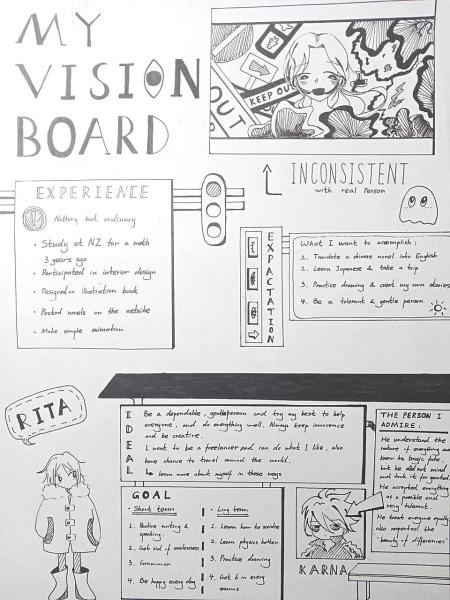 MY
VISION
BOARD
OUT
KEEP OUT
OUT
INCONSISTENT
with real person
EXPERIENCE
Nothing but ordinary
• Study at NZ for a moth
3 years ago
• Participated in interior design
• Designed an illustration book
• Posted novels on the website
• Make simple animation
EXPACTATION
What I want to accomplish:
1. Translate a chinese novel into English
2. Learn Japanese & take a trip
3. Practice drawing & creat my own stories
4. Be a tolerant & gentle person
RITA
IDEAL
Be a dependable, gentleperson and try my best to help
everyone, and do everything well. Always keep innocence
and be creative.
I want to be a freelancer and can do what I like, also
have chance to travel around the world.
↳ learn more about myself in these ways
GOAL
• Short term
1. Routine writing &
speaking
2. Get rid of carelessness
3. Grammar
4. Be happy every day
• Long term
1. Learn how to socialize
2. Learn physics better
3. Practice drawing
4. Get 6 in every
exams
THE PERSON I
ADMIRE:
He understood the
nature of everything and
knew his tragic fate
but he did not mind
and took it for granted.
He accepted everything
as a possible and
very tolerant.
He treat anyone equally
also respected the
"beauty of differences"
KARNA